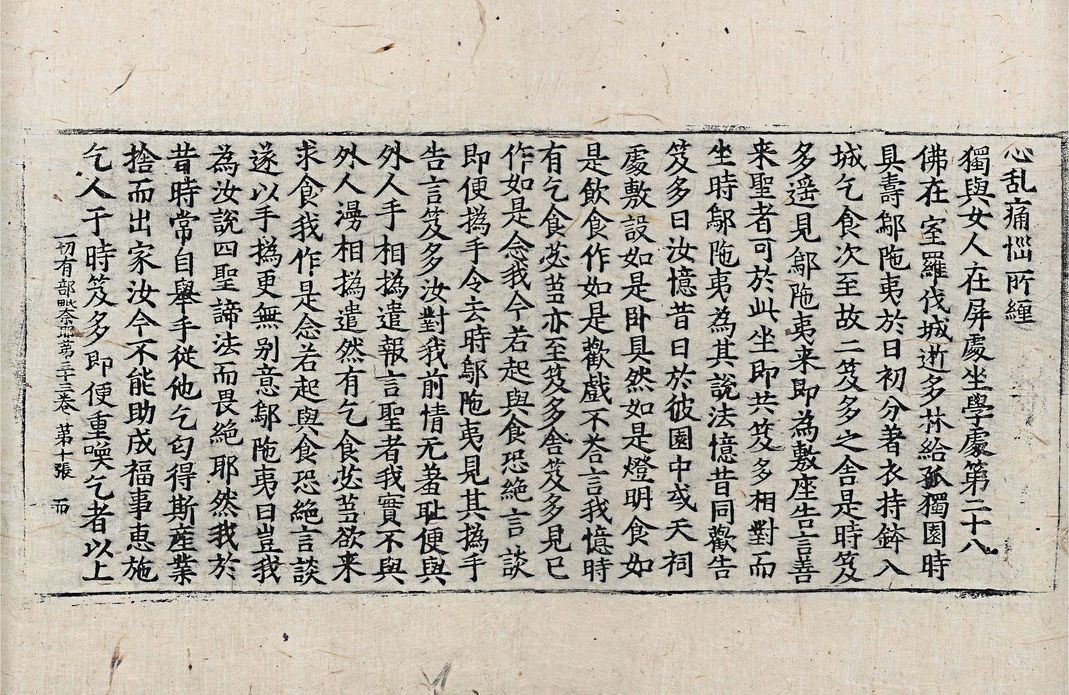 心乱痛惱所纏
獨與女人在屏處坐學處第二十八
佛在室羅伐城逝多林給孤獨園時
具壽鄔陁夷於日初分著衣持鉢入
城乞食次至故二笈多之舍是時笈
多遥見鄔陁夷来即為敷座告言善
来聖者可於此坐即共笈多相對而
坐時鄔陁夷為其說法憶昔同歡告
笈多曰汝憶昔日於彼園中或天祠
處敷設如是卧具然如是燈明食如
是飲食作如是歡戲不荅言我憶時
有乞食苾芻亦至笈多舍笈多見已
作如是念我今若起與食恐絶言談
即便撝手令去時鄔陁夷見其撝手
告言笈多汝對我前情无羞耻便與
外人手相撝遣報言聖者我實不與
外人漫相撝遣然有乞食苾芻欲来
求食我作是念若起與食恐絶言談
遂以手撝更無别意鄔陁夷曰豈我
為汝說四聖諦法而畏絶耶然我於
昔時常自舉手從他乞匃得斯産業
捨而出家汝今不能助成福事惠施
乞人于時笈多即便重喚乞者以上
一切有部毗奈耶第三十三卷 第十張 而